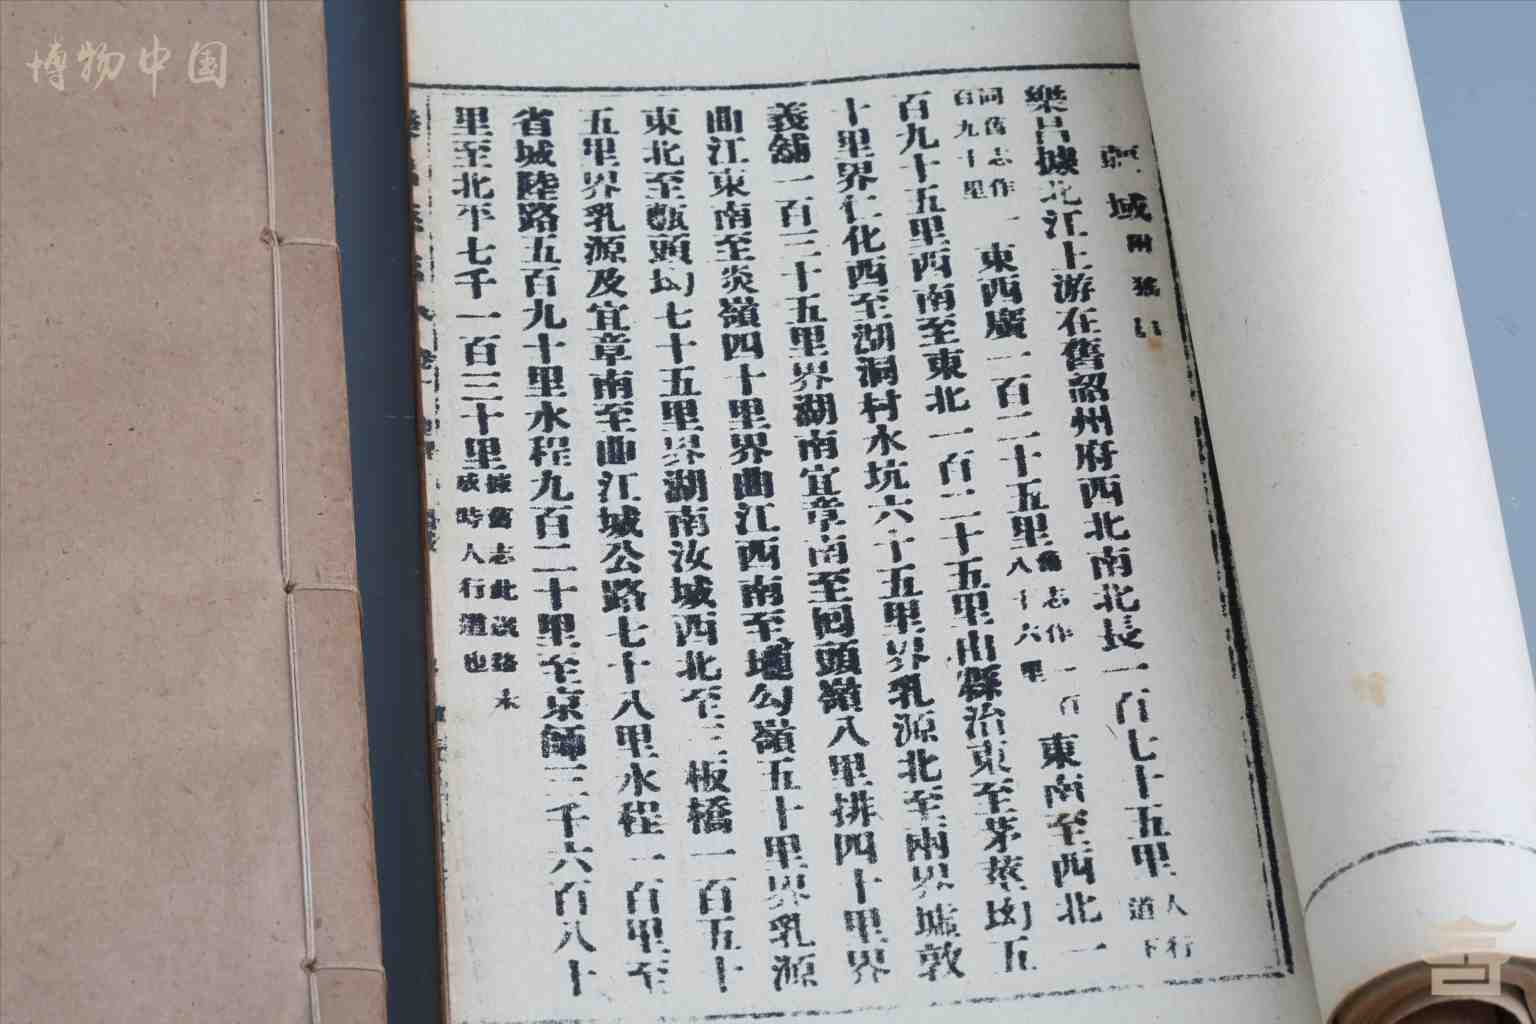 博物中国
疆域附墟
樂昌據北江上游在舊韶州府西北南北長一百七十五里人行道下
同舊志作一百九十里東西廣一百二十五里舊志作一百八十六里東南至西北一
百九十五里西南至東北一百二十五里由縣治東至茅菜坳五
十里界仁化西至湖洞村水坑六十五里界乳源北至兩界墟敦
義舖一百三十五里界湖南宜章南至囘頭嶺八里排四十里界
曲江東南至炎嶺四十里界曲江西南至墟勾嶺五十里界乳源
東北至甑頭坳七十五里界湖南汝城西北至三板橋一百五十
五里界乳源及宜章南至曲江城公路七十八里水程一百里至
省城陸路五百九十里水程九百二十里至京師三千六百八十
里至北平七千一百三十里據舊志此說路未成時人行道也